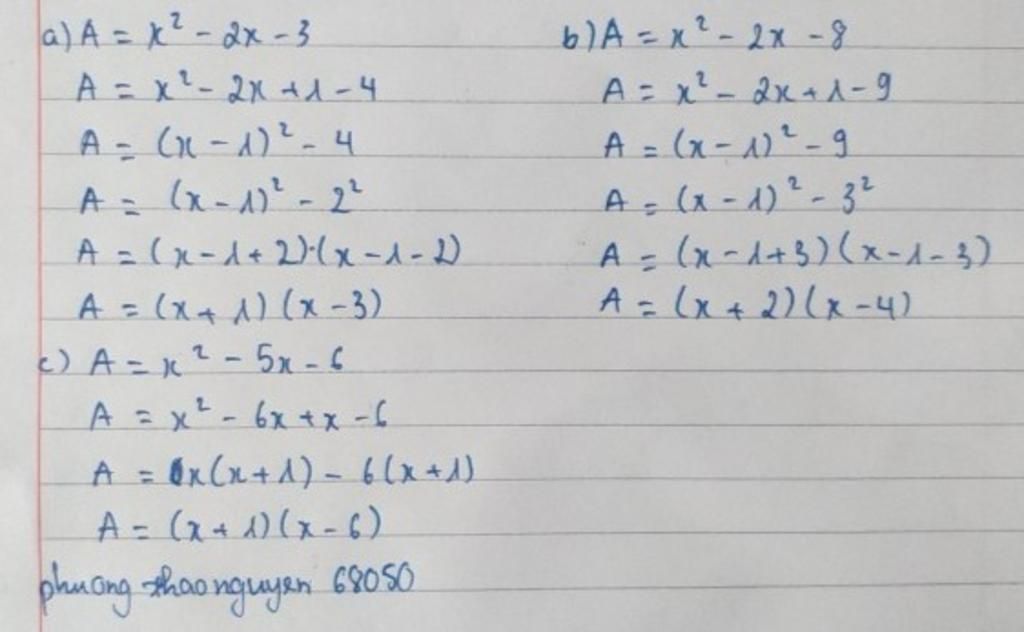 a) A = x² - 2x - 3
A = x² - 2x + 1 - 4
A = (x - 1)² - 4
A = (x - 1)² - 2²
A = (x - 1 + 2)·(x - 1 - 2)
A = (x + 1)(x - 3)
b) A = x² - 2x - 8
A = x² - 2x + 1 - 9
A = (x - 1)² - 9
A = (x - 1)² - 3²
A = (x - 1 + 3)(x - 1 - 3)
A = (x + 2)(x - 4)
c) A = x² - 5x - 6
A = x² - 6x + x - 6
A = x(x + 1) - 6(x + 1)
A = (x + 1)(x - 6)
phuong thaonguyen 68050